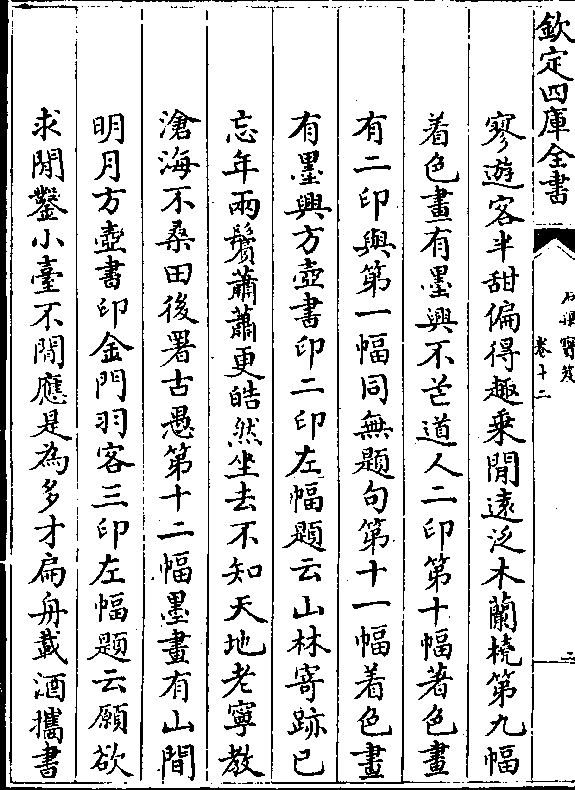 欽定四庫全書
石渠寶笈
卷十二
寥遊客半甜偏得趣乗閒逺泛木蘭橈第九幅
着色畫有墨興不芒道人二印第十幅著色畫
有二印與第一幅同無題句第十一幅着色畫
有墨興方壺書印二印左幅題云山林寄跡已
忘年兩鬢蕭蕭更皓然坐去不知天地老寧教
滄海不桑田後署古愚第十二幅墨畫有山間
明月方壺書印金門羽客三印左幅題云願欲
求閒鑿小臺不閒應是為多才扁舟載酒攜書